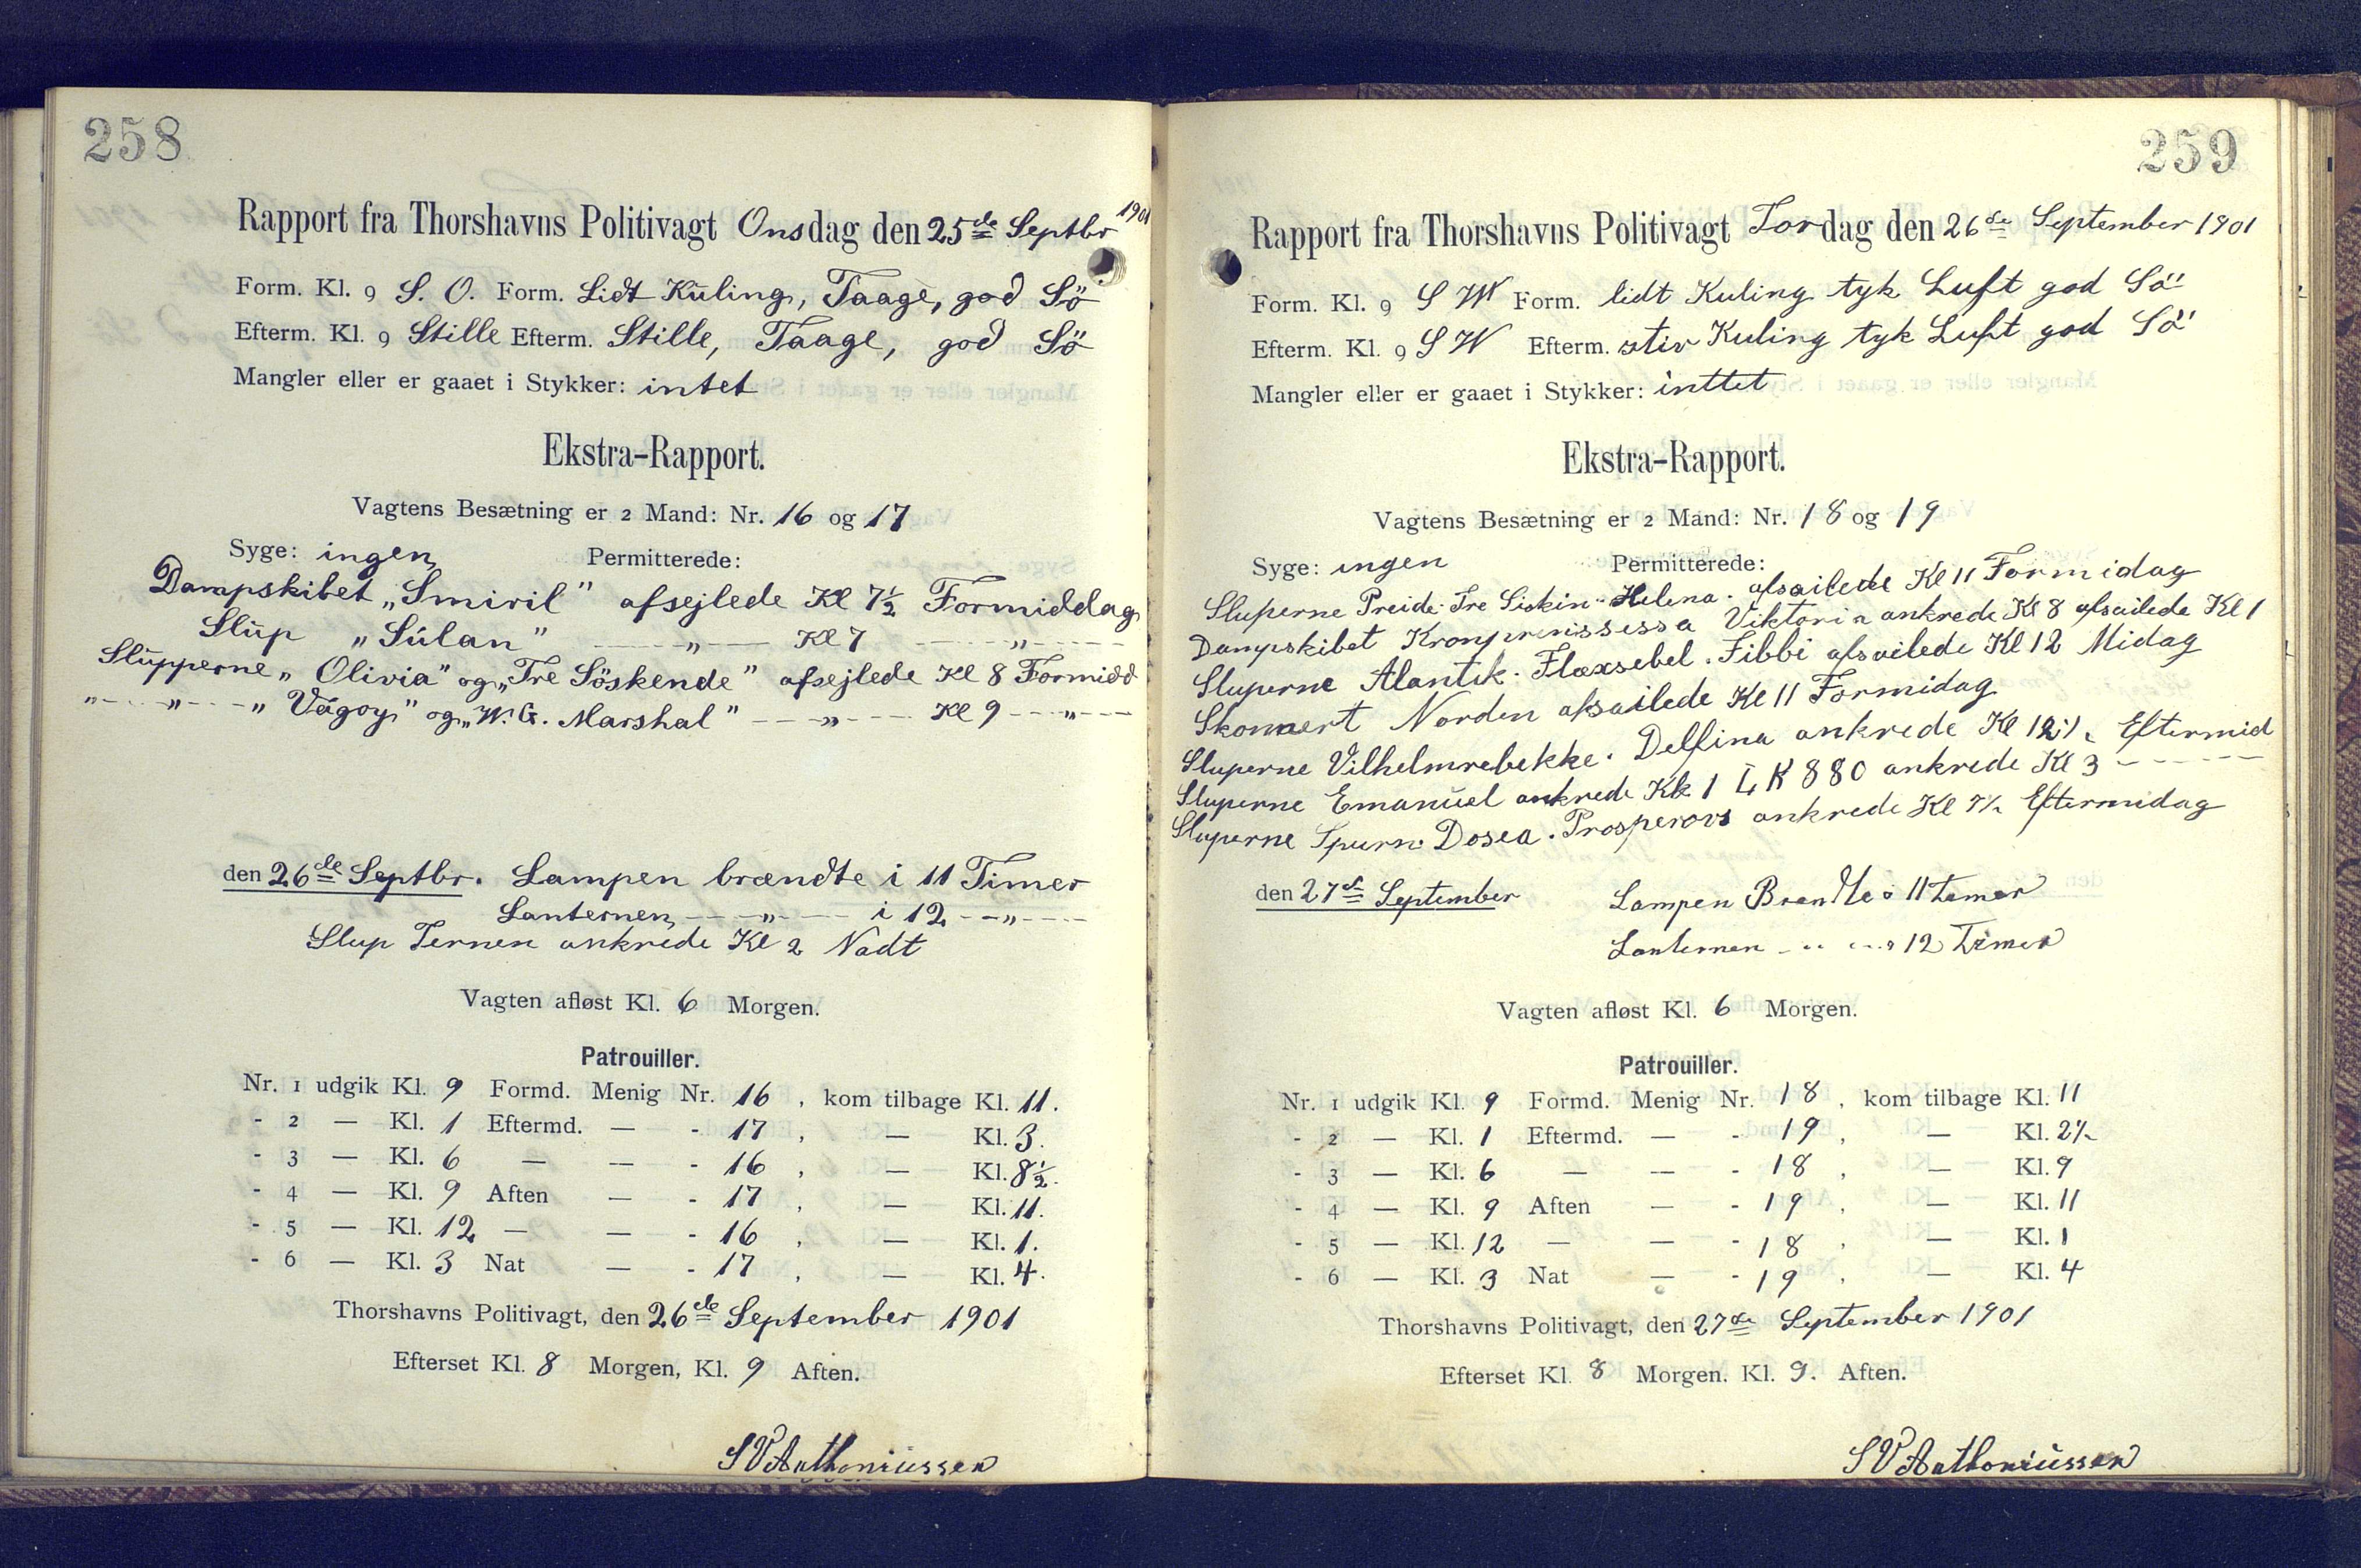 258
Rapport fra Thorshavns Politivagt Onsdag den 25de Septbr 1901
Form. Kl. 9 S. O. Form. Lidt Kuling, Taage, god Sö
Efterm. Kl. 9 Stille Efterm. Stille, Taage, god Sö
Mangler eller er gaaet i Stykker: intet
Ekstra-Rapport.
Vagtens Besætning er 2 Mand: Nr. 16 og 17
Syge: ingen Permitterede:
Dampskibet „Smiril" afsejlede Kl 7½ Formiddag
Slup „Súlan" — „ — Kl 7 — „ —
Slupperne „Olivia" og „Tre Söskende" afsejlede Kl 8 Formidd
„ — „ — „ Vágoy" og „W. G. Marshal" — „ — Kl 9 — „ —
den 26de Septbr. Lampen brændte i 11 Timer
Lanternen — „ — i 12 — „ —
Slup Ternen ankrede Kl 2 Nadt
Vagten afløst Kl. 6 Morgen.
Patrouiller.
Nr. 1 udgik Kl. 9 Formd. Menig Nr. 16, kom tilbage Kl. 11.
- 2 — Kl. 1 Eftermd. — - 17, — Kl. 3.
- 3 — Kl. 6 — — - 16, — Kl. 8½.
- 4 — Kl. 9 Aften — - 17, — Kl. 11.
- 5 — Kl. 12 — — - 16, — Kl. 1.
- 6 — Kl. 3 Nat — - 17, — Kl. 4.
Thorshavns Politivagt, den 26de September 1901
Efterset Kl. 8 Morgen, Kl. 9 Aften.
S V Anthoniussen
259
Rapport fra Thorshavns Politivagt Tordag den 26de September 1901
Form. Kl. 9 S W Form. lidt Kuling tyk Luft god Sö
Efterm. Kl. 9 S W Efterm. stiv Kuling tyk Luft god Sö
Mangler eller er gaaet i Stykker: inttet
Ekstra-Rapport.
Vagtens Besætning er 2 Mand: Nr. 18 og 19
Syge: ingen Permitterede:
Sluperne Preide. Tre Siskin. Helena. afsailede Kl 11 Formidag
Dampskibet Kronprinssessa Viktoria ankrede Kl 8 afsailede Kl 1
Sluperne Alantik. Flaxsebel. Fibbi afsailede Kl 12 Midag
Skonnert Norden afsailede Kl 11 Formidag
Sluperne Vilhelmrebekke. Delfina ankrede Kl 12½ Eftermid
Sluperne Emanuel ankrede Kl 1 L K 880 ankrede Kl 3 — —
Sluperne Spurn. Dosea. Prosperovs ankrede Kl 7½ Eftermidag
den 27de September Lampen Brendte i 11 Timer
Lanternen - „ - 12 Timer
Vagten afløst Kl. 6 Morgen.
Patrouiller.
Nr. 1 udgik Kl. 9 Formd. Menig Nr. 18, kom tilbage Kl. 11
- 2 — Kl. 1 Eftermd. — - 19, — Kl. 2½
- 3 — Kl. 6 — — - 18, — Kl. 9
- 4 — Kl. 9 Aften — - 19, — Kl. 11
- 5 — Kl. 12 — — - 18, — Kl. 1
- 6 — Kl. 3 Nat — - 19, — Kl. 4
Thorshavns Politivagt, den 27de September 1901
Efterset Kl. 8 Morgen. Kl. 9. Aften.
S V Anthoniussen